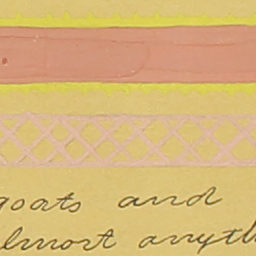 goats and
almost anyth